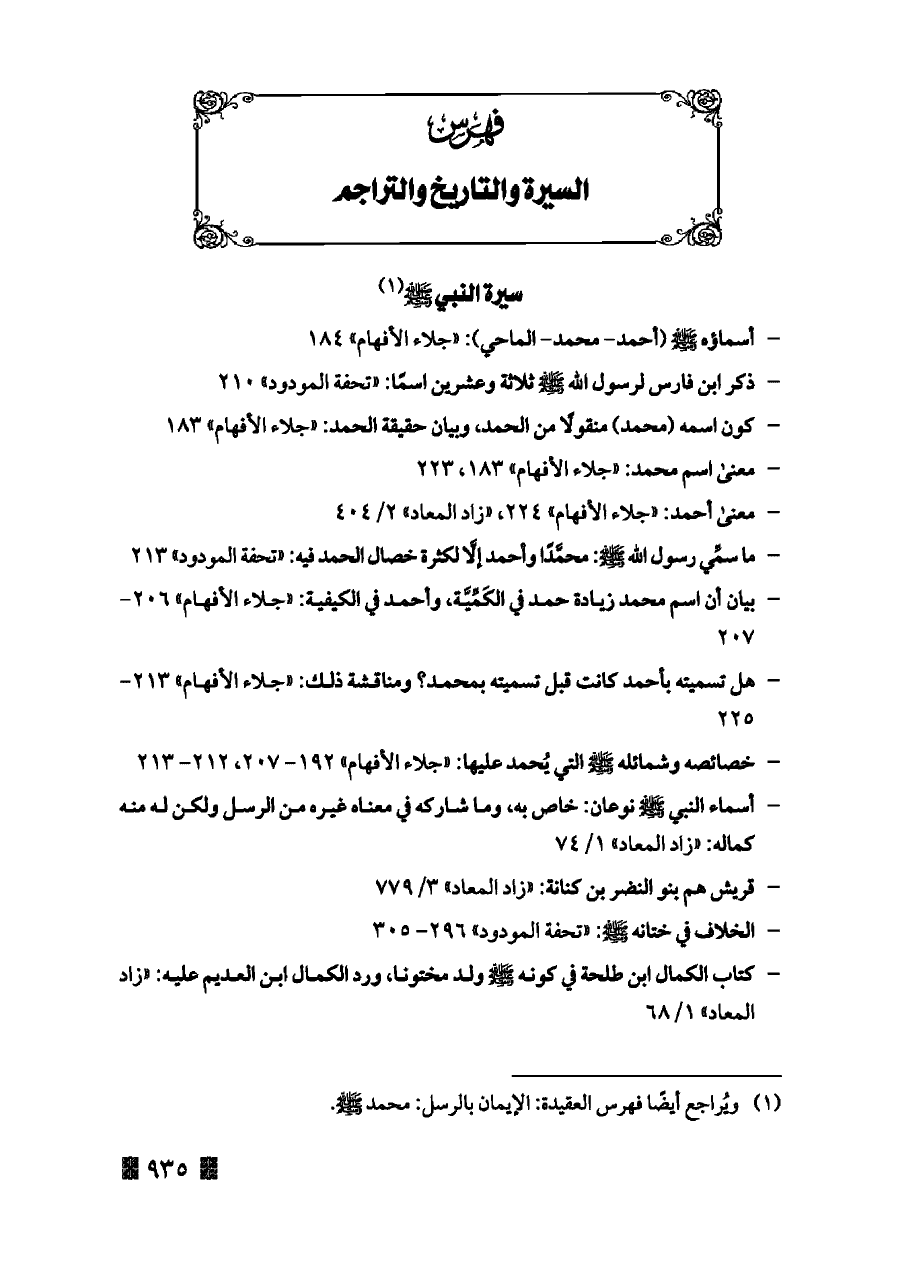 فهرس
السيرة والتاريخ والتراجم
سيرة النبي ﷺ(١)
- أسماؤه ﷺ (أحمد- محمد- الماحي): «جلاء الأفهام» ١٨٤
- ذكر ابن فارس لرسول الله ﷺ ثلاثة وعشرين اسمًا: «تحفة المودود» ٢١٠
- كون اسمه (محمد) منقولًا من الحمد، وبيان حقيقة الحمد: «جلاء الأفهام» ١٨٣
- معنىٰ اسم محمد: «جلاء الأفهام» ١٨٣، ٢٢٣
- معنىٰ أحمد: «جلاء الأفهام» ٢٢٤، «زاد المعاد» ٢/ ٤٠٤
- ما سمِّي رسول الله ﷺ: محمَّدًا وأحمد إلَّا لكثرة خصال الحمد فيه: «تحفة المودود» ٢١٣
- بيان أن اسم محمد زيادة حمد في الكَمِّيَّة، وأحمد في الكيفية: «جلاء الأفهام» ٢٠٦-
٢٠٧
- هل تسميته بأحمد كانت قبل تسميته بمحمد؟ ومناقشة ذلك: «جلاء الأفهام» ٢١٣-
٢٢٥
- خصائصه وشمائله ﷺ التي يُحمد عليها: «جلاء الأفهام» ١٩٢- ٢٠٧، ٢١٢- ٢١٣
- أسماء النبي ﷺ نوعان: خاص به، وما شاركه في معناه غيره من الرسل ولكن له منه
كماله: «زاد المعاد» ١/ ٧٤
- قريش هم بنو النضر بن كنانة: «زاد المعاد» ٣/ ٧٧٩
- الخلاف في ختانه ﷺ: «تحفة المودود» ٢٩٦- ٣٠٥
- كتاب الكمال ابن طلحة في كونه ﷺ ولد مختونا، ورد الكمال ابن العديم عليه: «زاد
المعاد» ١/ ٦٨
(١) ويُراجع أيضًا فهرس العقيدة: الإيمان بالرسل: محمد ﷺ.
٩٣٥